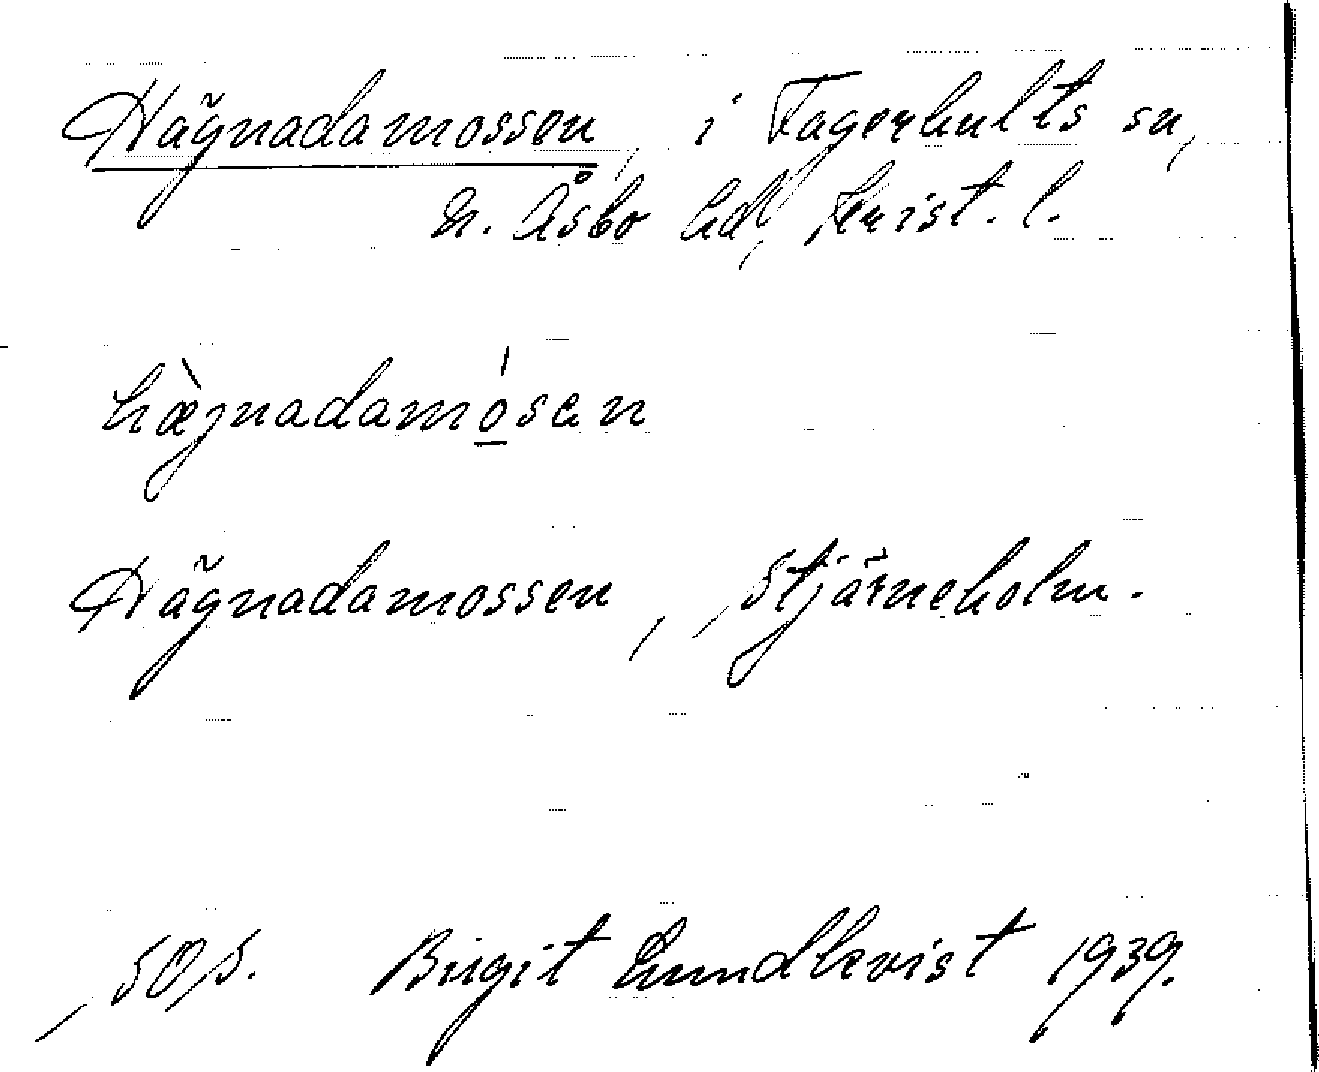 Hägnadamossen, i Fagerhults sn,
N. Åsbo hd, Krist. l.
hæ̀gnadamó̲sen
Hägnadamossen, Stjärneholm.
Birgit Lundkvist 1939.